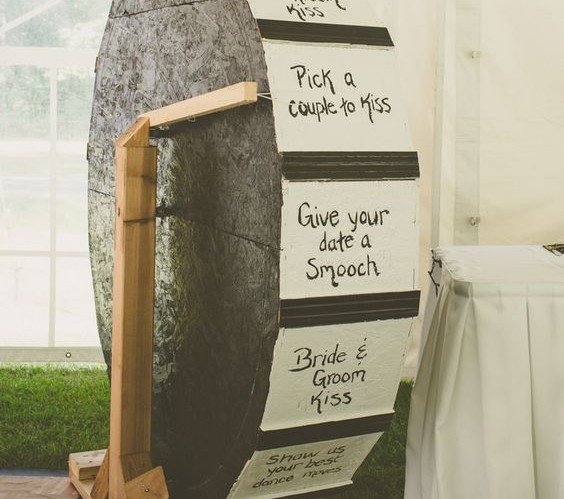 Kiss
Pick a
couple to Kiss
Give your
date a
Smooch
Bride &
Groom
Kiss
Show us
your best
dance moves